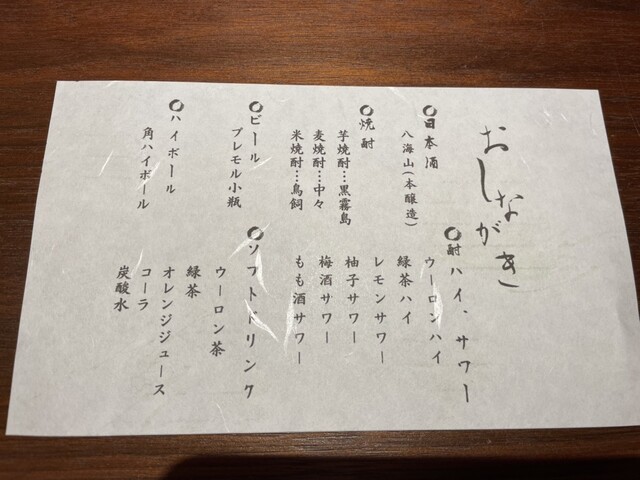 おしながき
○日本酒
八海山(本醸造)
○焼酎
芋焼酎…黒霧島
麦焼酎…中々
米焼酎…鳥飼
○ビール
プレモル小瓶
○ハイボール
角ハイボール
○酎ハイ、サワー
ウーロンハイ
緑茶ハイ
レモンサワー
柚子サワー
梅酒サワー
もも酒サワー
○ソフトドリンク
ウーロン茶
緑茶
オレンジジュース
コーラ
炭酸水